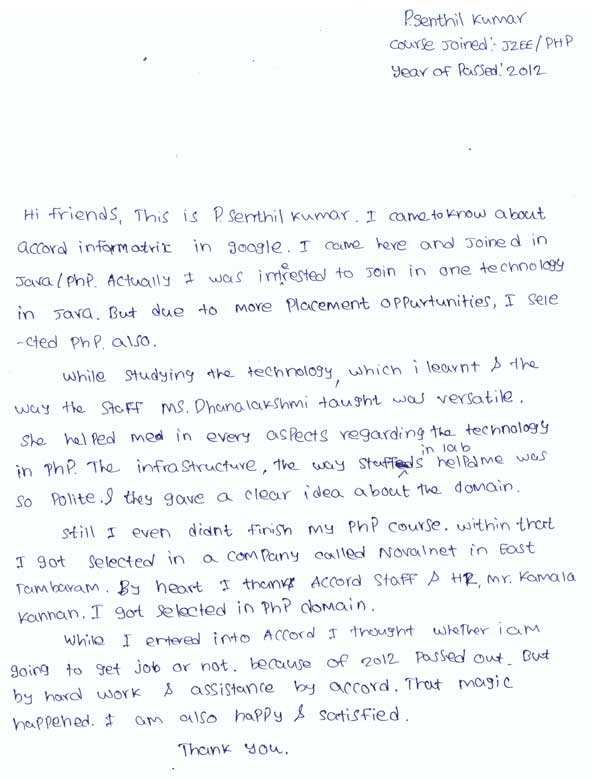 P.Senthil Kumar
Course Joined:- J2EE/PHP
Year of Passed:' 2012
Hi friends, This is P.Senthil Kumar. I came to know about
accord informatrix in google. I came here and Joined in
Java/PhP. Actually I was interested to Join in one technology
in Java. But due to more Placement oppurtunities, I sele
-cted PhP. also.
While studying the technology, which i learnt & the
way the Staff Ms. Dhanalakshmi taught was versatile.
She helped med in every aspects regarding the technology
in PhP. The infrastructure, the way staffs in lab helpdme was
so Polite. & they gave a clear idea about the domain.
Still I even didnt finish my PhP course. within that
I got Selected in a company called Novalnet in East
Tambaram. By heart I thank Accord Staff & HR, Mr. Kamala
Kannan. I got selected in PhP domain.
While I entered into Accord I thought whether i am
going to get job or not. because of 2012 Passed out. But
by hard work & assistance by accord. That magic
happened. I am also happy & satisfied.
Thank you.